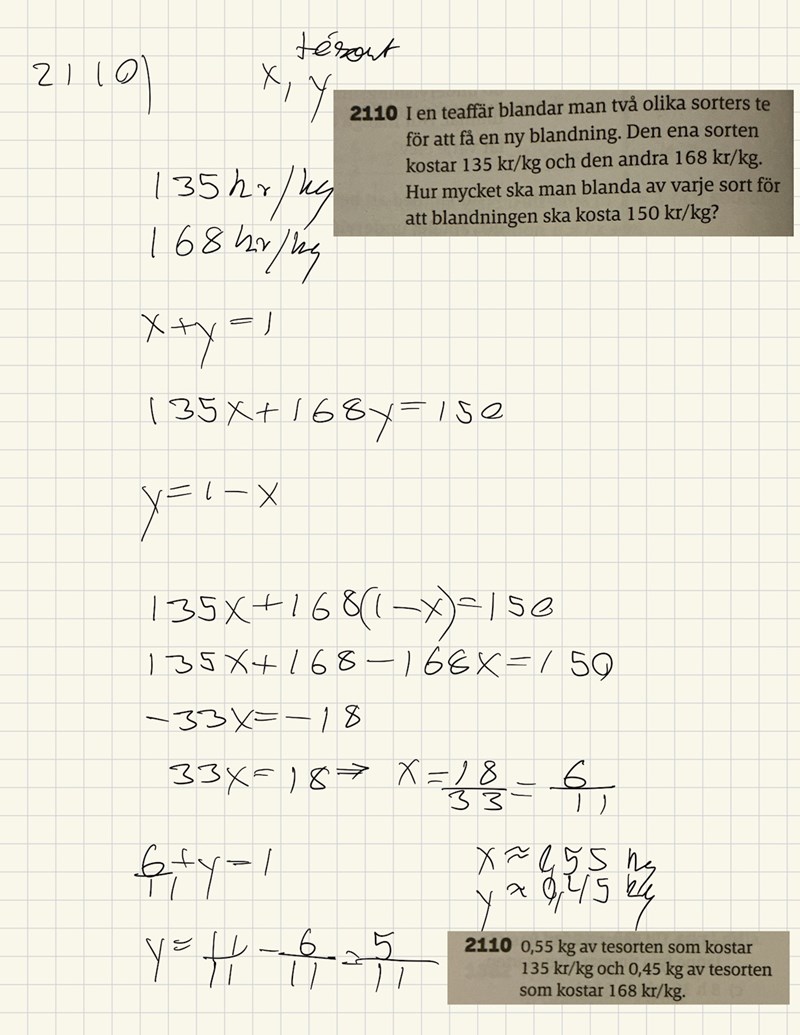 2110)
tésort
x, y
2110 I en teaffär blandar man två olika sorters te
för att få en ny blandning. Den ena sorten
kostar 135 kr/kg och den andra 168 kr/kg.
Hur mycket ska man blanda av varje sort för
att blandningen ska kosta 150 kr/kg?
135 kr/kg
168 kr/kg
x+y=1
135x+168y=150
y=1-x
135x+168(1-x)=150
135x+168-168x=150
-33x=-18
33x=18⇒ x=18/33=6/11
6/11+y=1
x≈0,55 kg
y≈0,45 kg
y=11/11-6/11=5/11
2110 0,55 kg av tesorten som kostar
135 kr/kg och 0,45 kg av tesorten
som kostar 168 kr/kg.